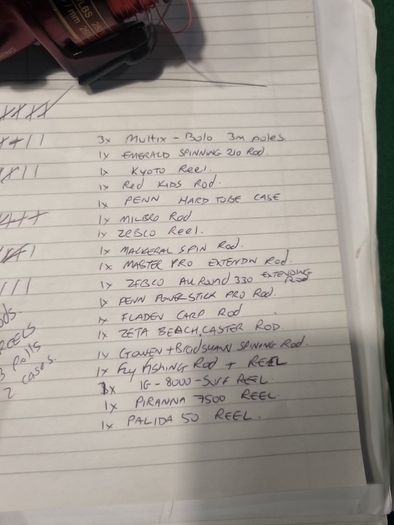 LBS
/mm
3x Multix - Bolo 3m Poles
1x EMERALD SPINNING 210 Rod.
1x KYOTO Reel.
1x Red KIDS Rod.
1x PENN HARD TUBE CASE
1x MILBRO Rod
1x ZEBCO REEL.
1x MACKERAL SPIN Rod.
1x MASTER PRO EXTENDN Rod.
1x ZEBCO ALLROUND 330 EXTENDING ROD
1x PENN POWERSTICK PRO Rod.
1x FLADEN CARP ROD
1x ZETA BEACHCASTER ROD
1x SPINNING Rod.
1x Fly FISHING Rod + REEL
IG-8000-SURF REEL.
1x PIRANNA 7500 REEL
1x PALIDA 50 REEL.
ods
REELS
3 Polls
2 cases.